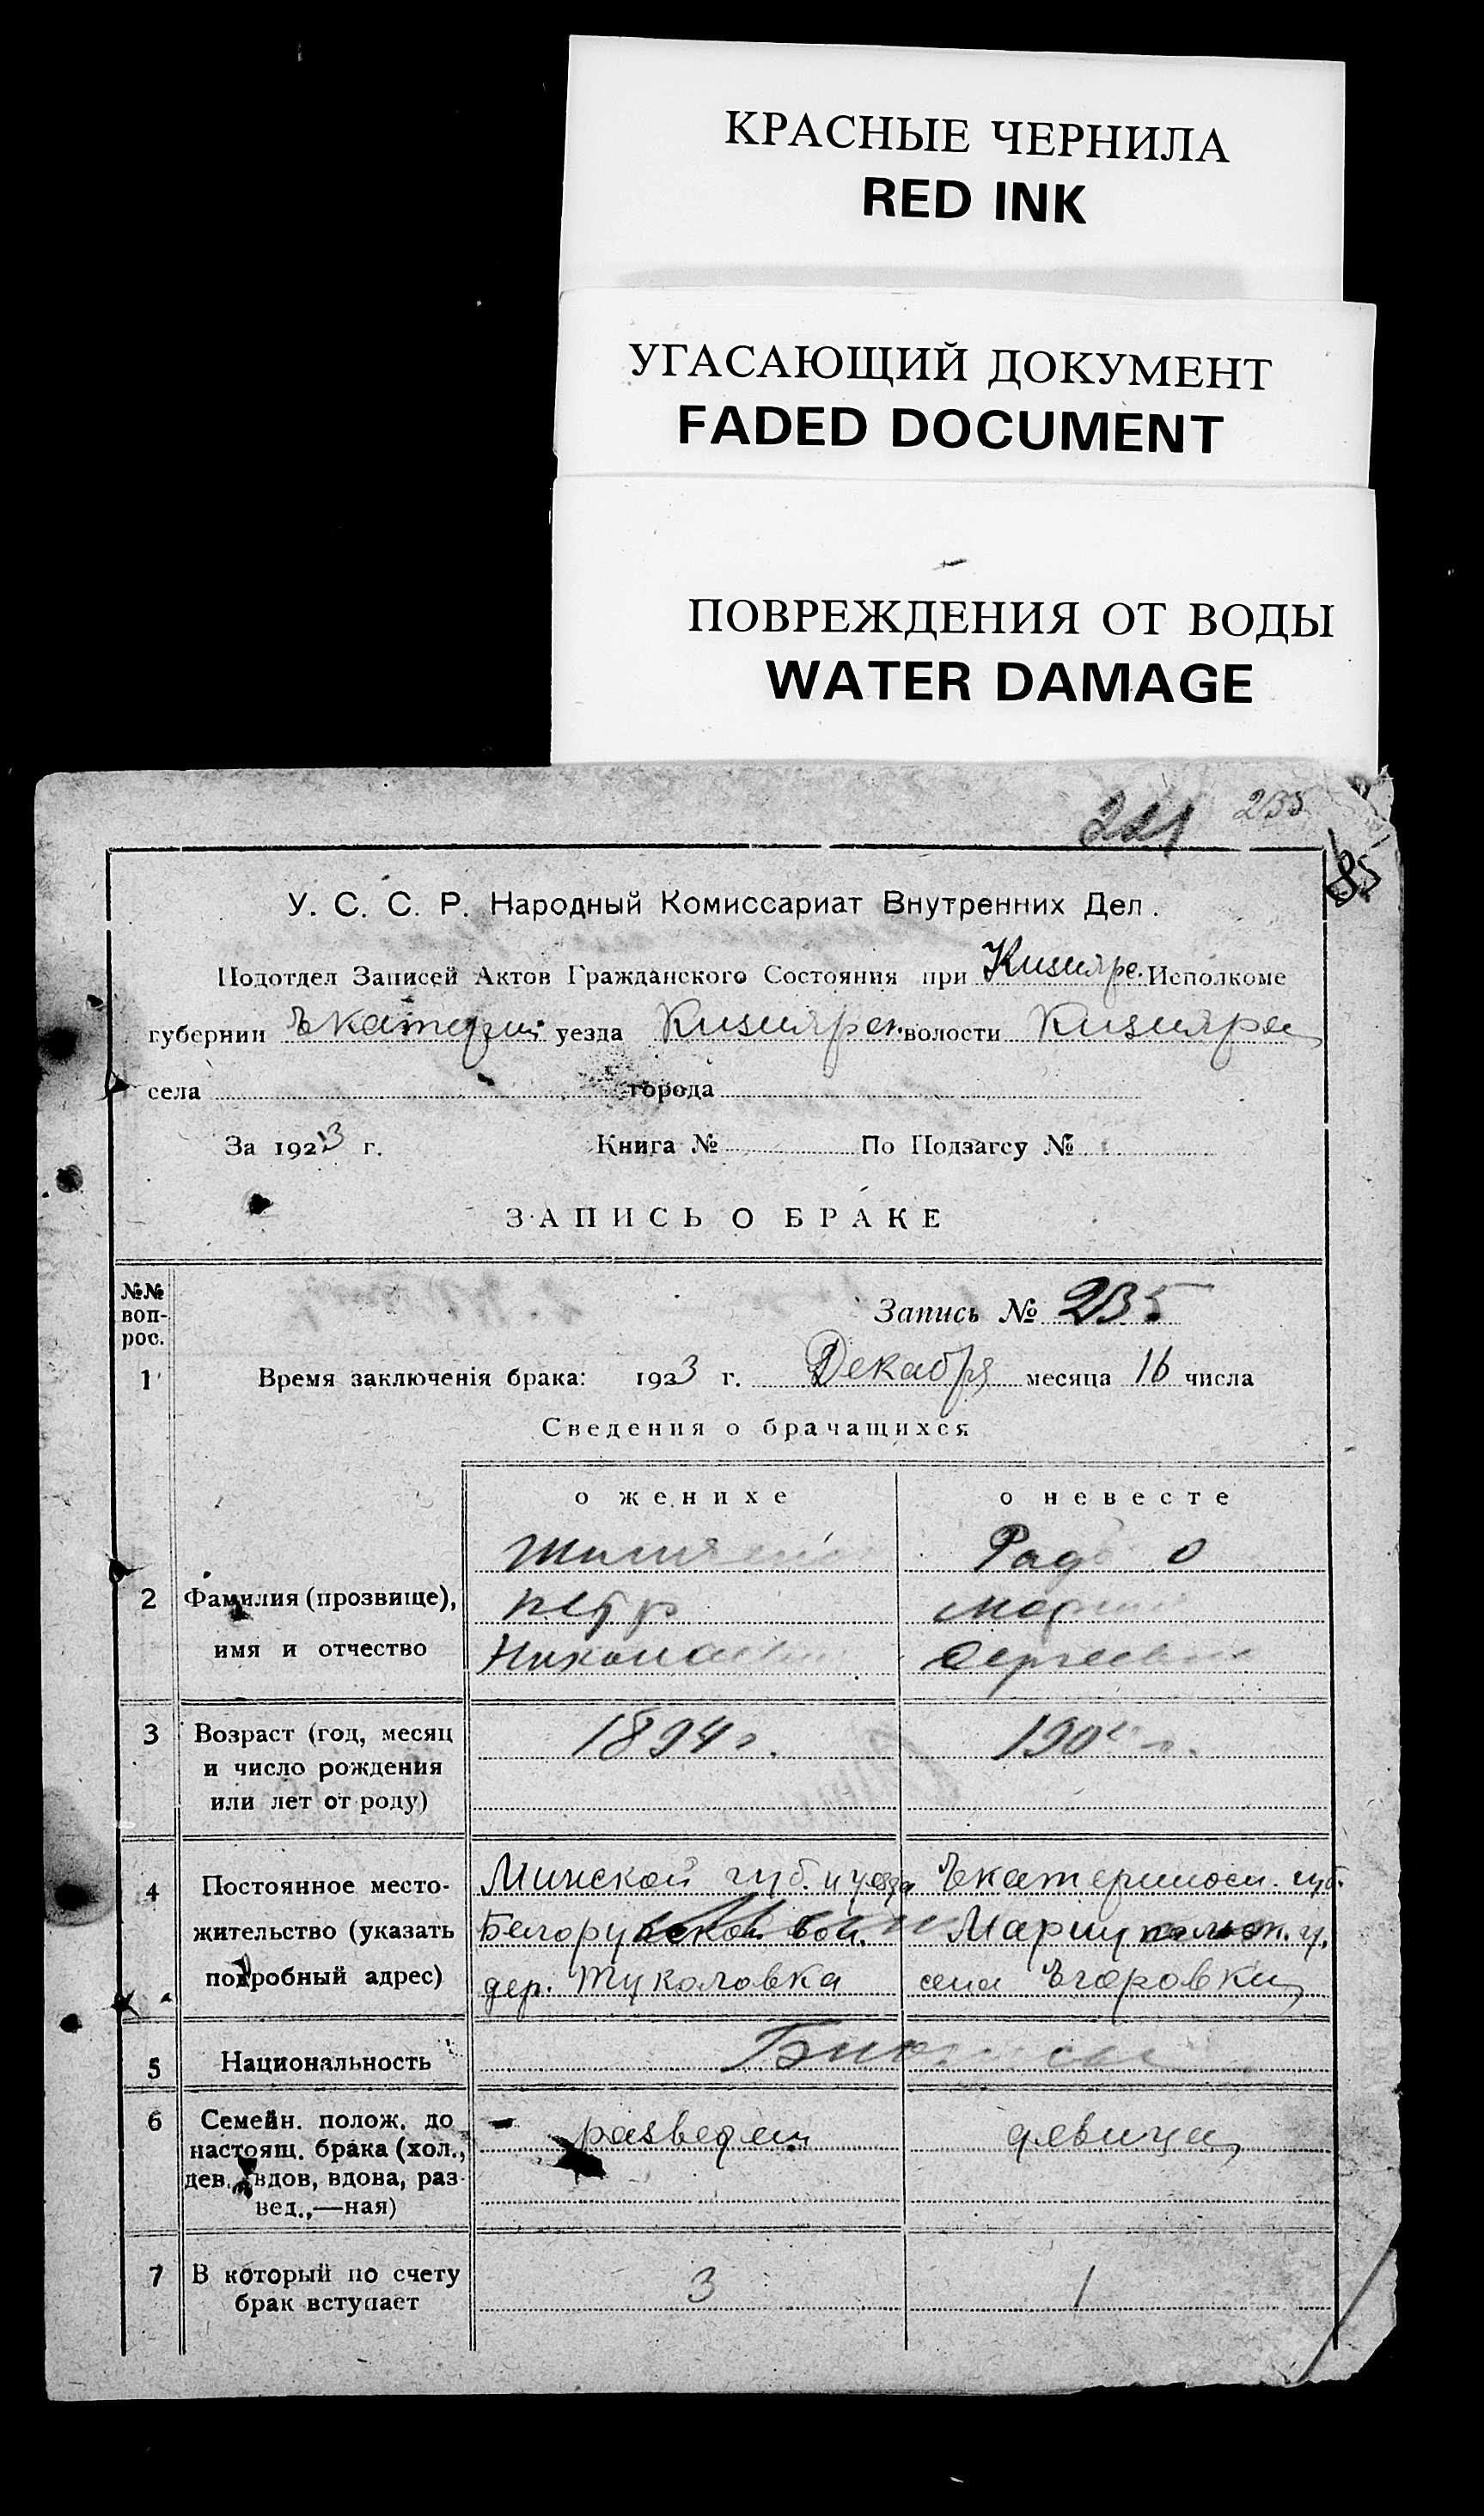 КРАСНЫЕ ЧЕРНИЛА
RED INK
УГАСАЮЩИЙ ДОКУМЕНТ
FADED DOCUMENT
ПОВРЕЖДЕНИЯ ОТ ВОДЫ
WATER DAMAGE
221 235
85
У. С. С. Р. Народный Комиссариат Внутренних Дел.
Подотдел Записей Актов Гражданского Состояния при Исполкоме
губернии уезда волости
села города
За 1923 г. Книга № По Подзагсу №
ЗАПИСЬ О БРАКЕ
№№ воп-рос.
Запись № 235
1 Время заключенія брака: 1923 г. Декабря месяца 16 числа
Сведения о брачащихся
о женихе о невесте
2 Фамилия (прозвище),
Петр
имя и отчество
Николаевич Сергеевна
3 Возраст (год, месяц 1894 г.
и число рождения
или лет от роду)
4 Постоянное место- Минской губ. и уезда Екатеринosл. губ.
жительство (указать вол. Мариупольск. у.
подробный адрес) дер. села Егоровки
5 Национальность
6 Семейн. полож. до разведен девица
настоящ. брака (хол.,
дев., вдов, вдова, раз-
вед.,—ная)
7 В который по счету 3 1
брак вступает